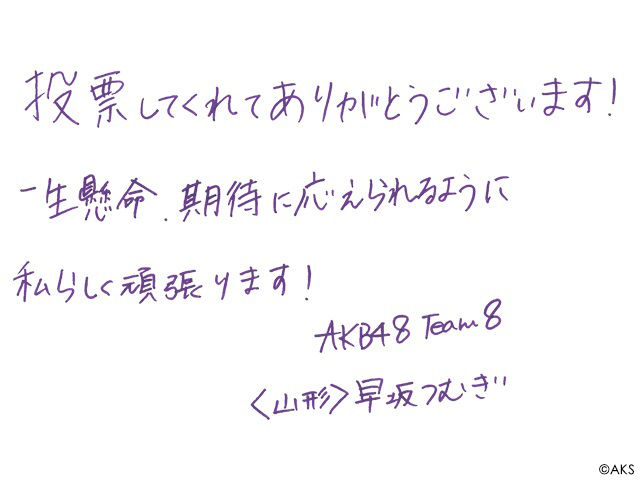 投票してくれてありがとうございます!
一生懸命、期待に応えられるように
私らしく頑張ります!
AKB48 Team8
<山形>早坂つむぎ
©AKS